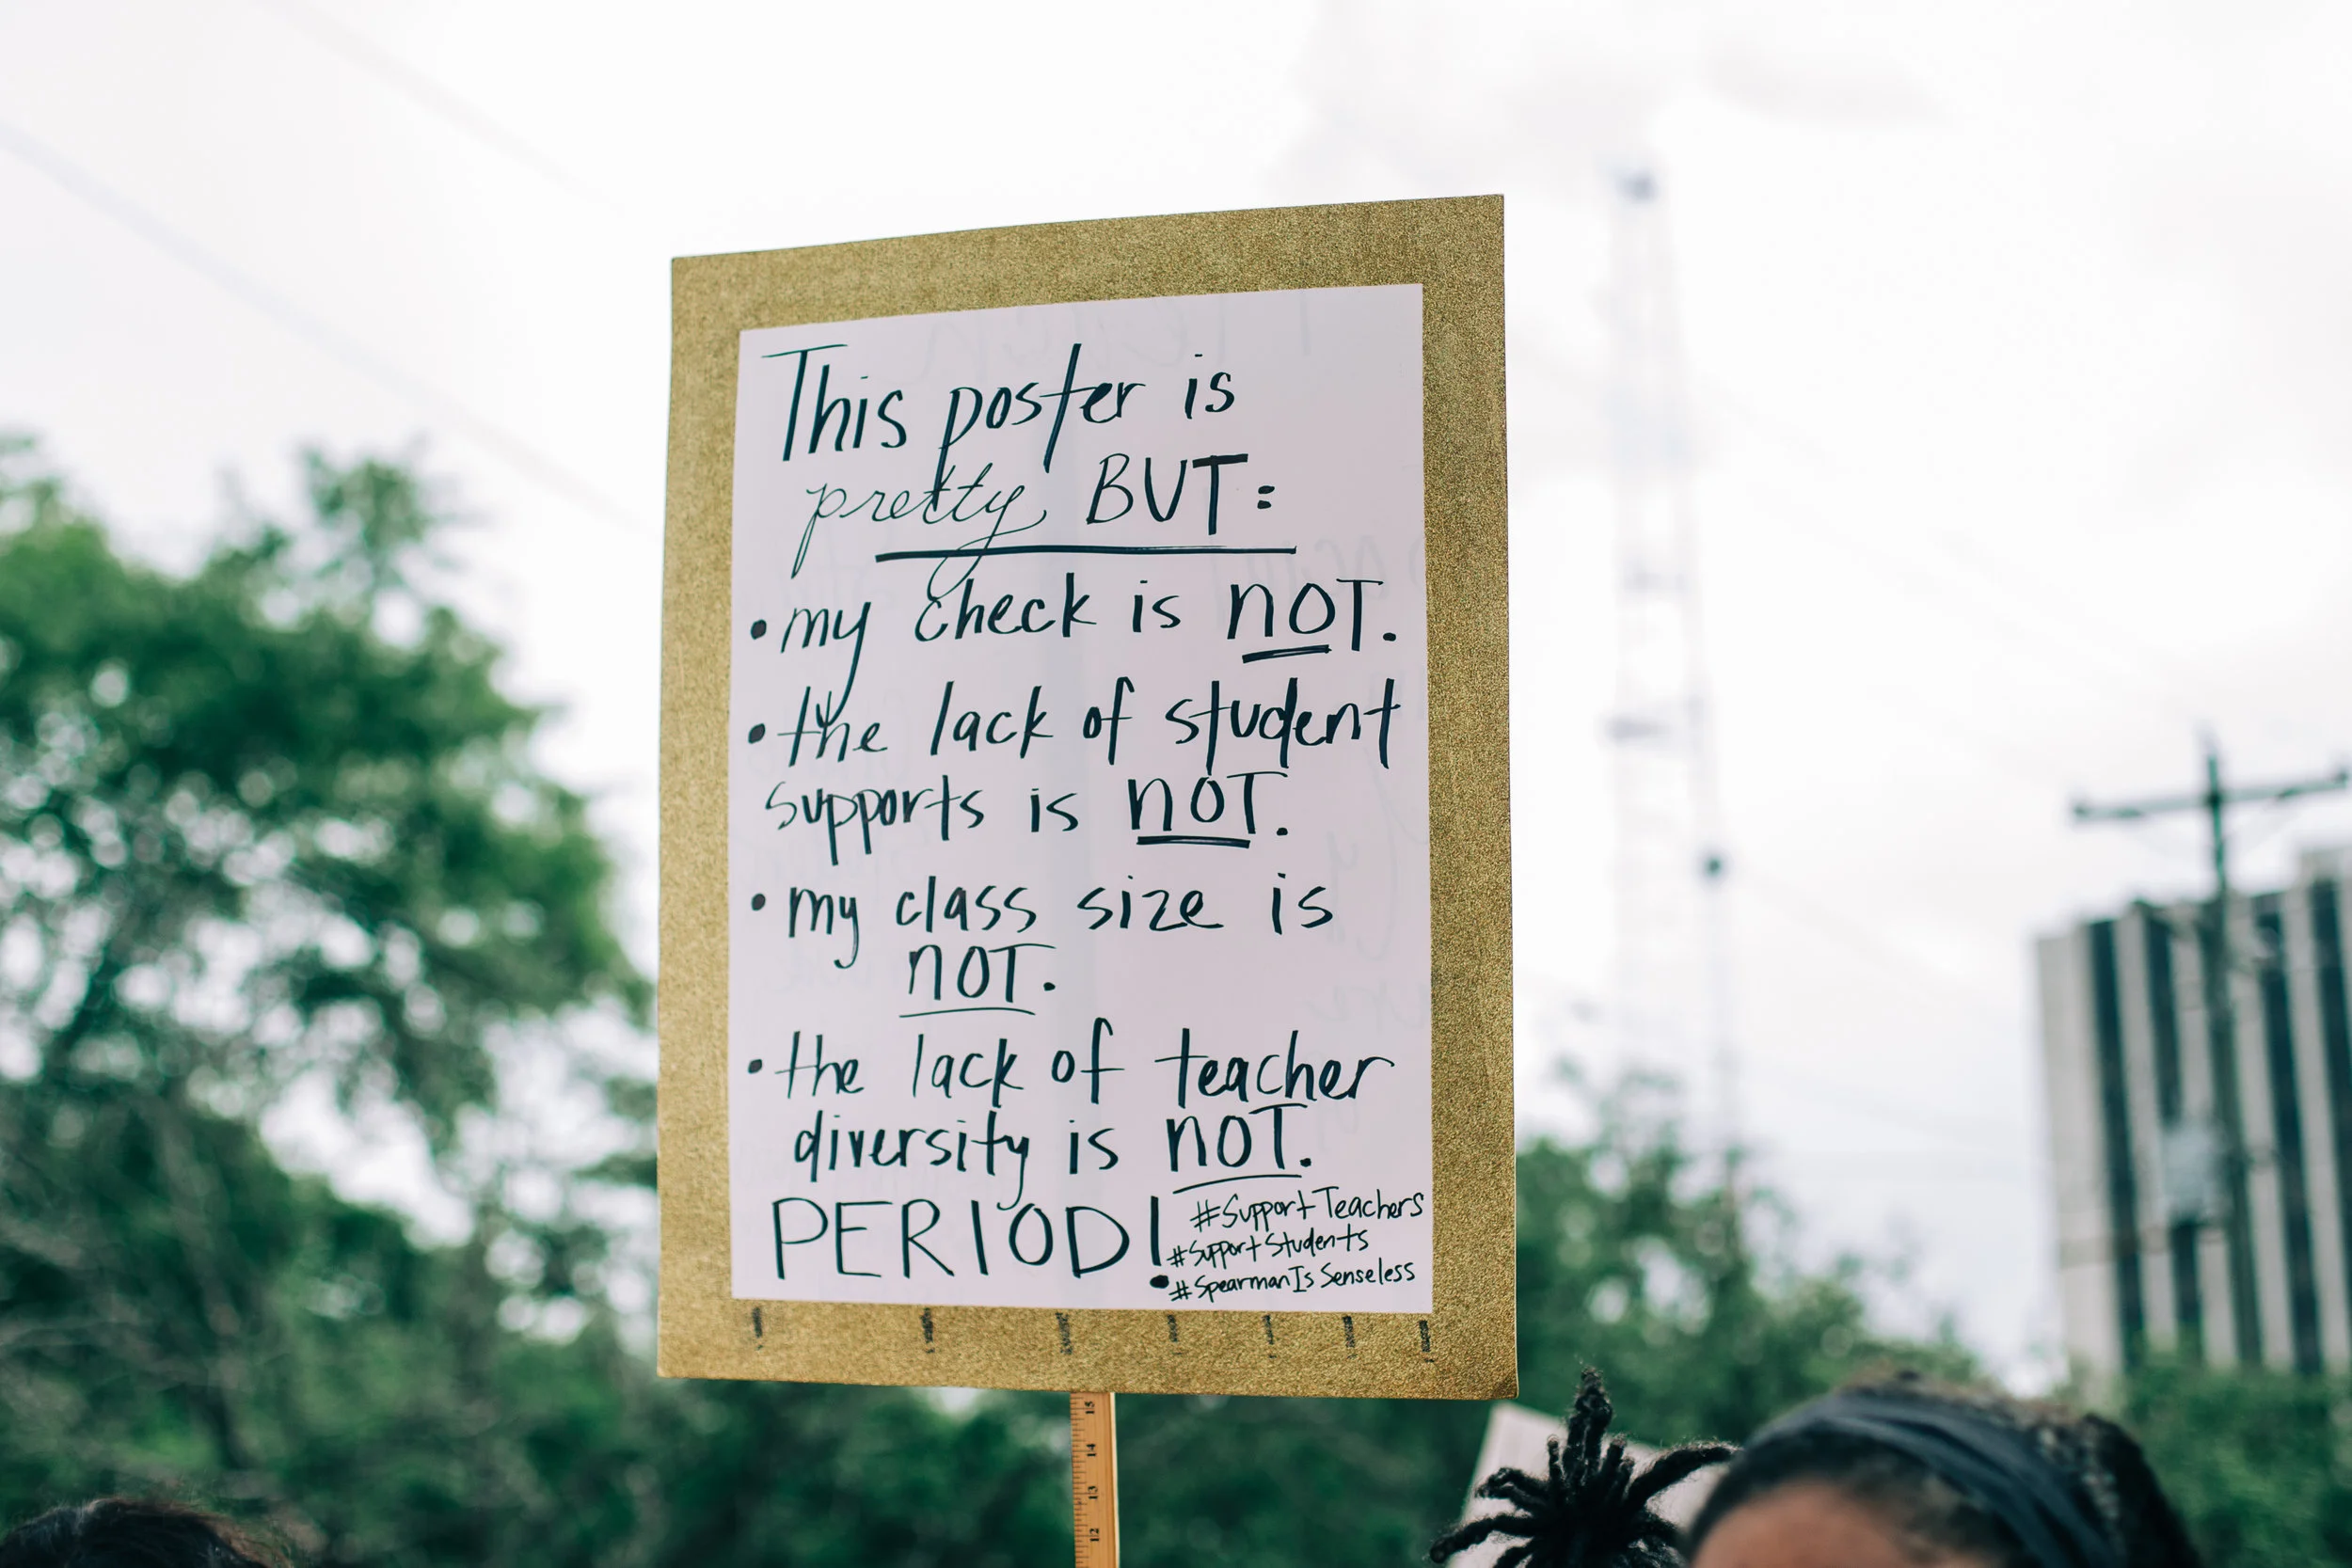 This poster is
pretty BUT:
• my check is nOT.
• the lack of student
supports is nOT.
• my class size is
nOT.
• the lack of teacher
diversity is nOT.
PERIOD!
#SupportTeachers
#SupportStudents
#SpearmanIsSenseless
15
14
13
12